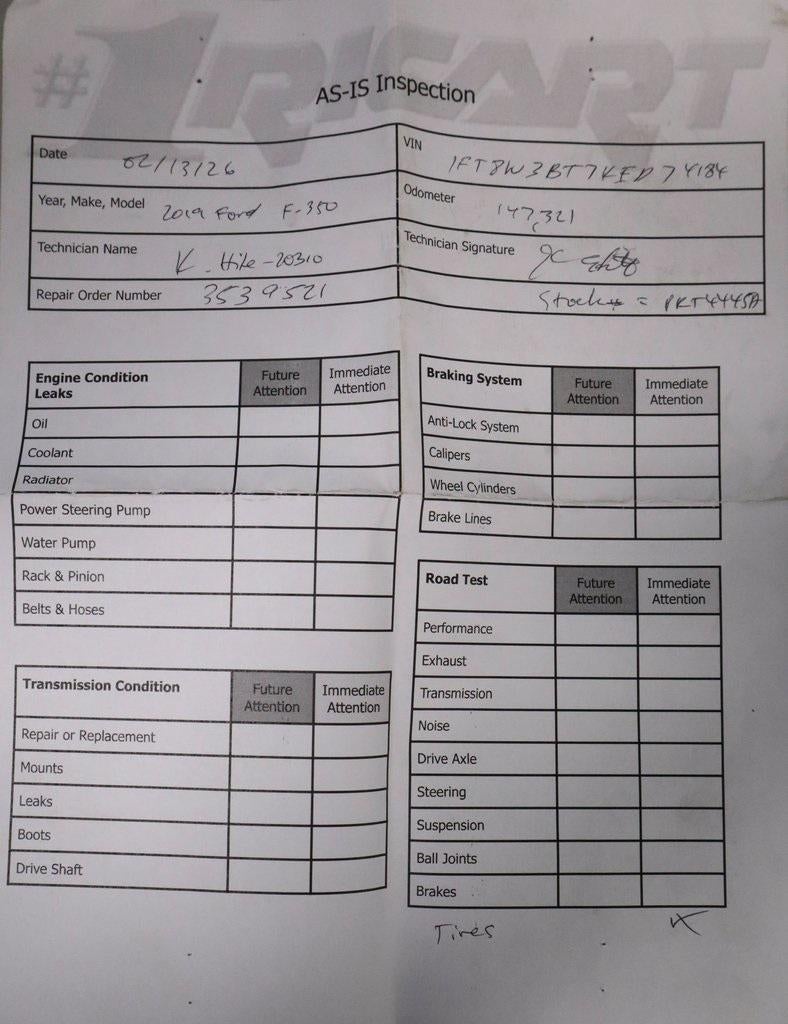 #1 RICART
AS-IS Inspection
Date 02/13/26
VIN 1FT8W3BT7KED74184
Year, Make, Model 2019 Ford F-350
Odometer 147,321
Technician Name K. Hite-20310
Technician Signature
Repair Order Number 3539521
Stock# = PKT4445A
Engine Condition Leaks Future Attention Immediate Attention
Oil
Coolant
Radiator
Power Steering Pump
Water Pump
Rack & Pinion
Belts & Hoses
Transmission Condition Future Attention Immediate Attention
Repair or Replacement
Mounts
Leaks
Boots
Drive Shaft
Braking System Future Attention Immediate Attention
Anti-Lock System
Calipers
Wheel Cylinders
Brake Lines
Road Test Future Attention Immediate Attention
Performance
Exhaust
Transmission
Noise
Drive Axle
Steering
Suspension
Ball Joints
Brakes
Tires X